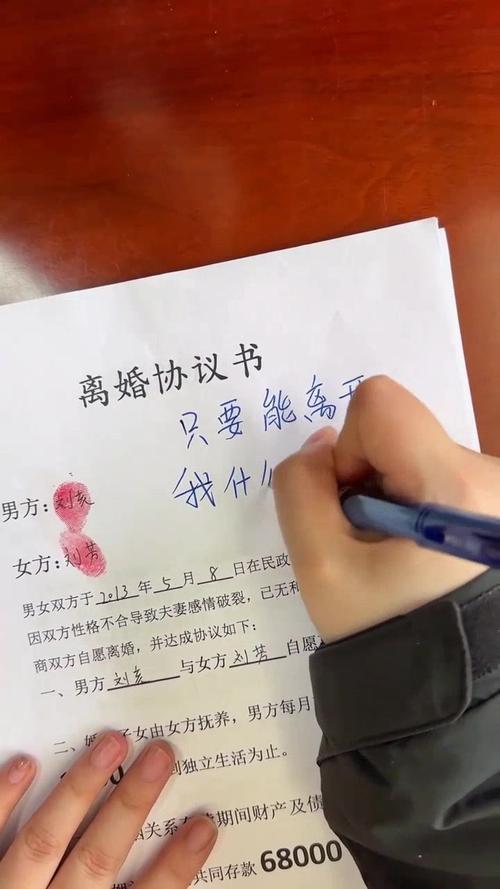 离婚协议书
只要能离开
我什么
男方:刘亥
女方:刘芳
男女双方于2013年5月8日在民政
因双方性格不合导致夫妻感情破裂,已无和
商双方自愿离婚,并达成协议如下:
一、男方刘亥与女方刘芳自愿
二、婚 子女由女方抚养,男方每月
到独立生活为止。
关系存续期间财产及债
共同存款68000